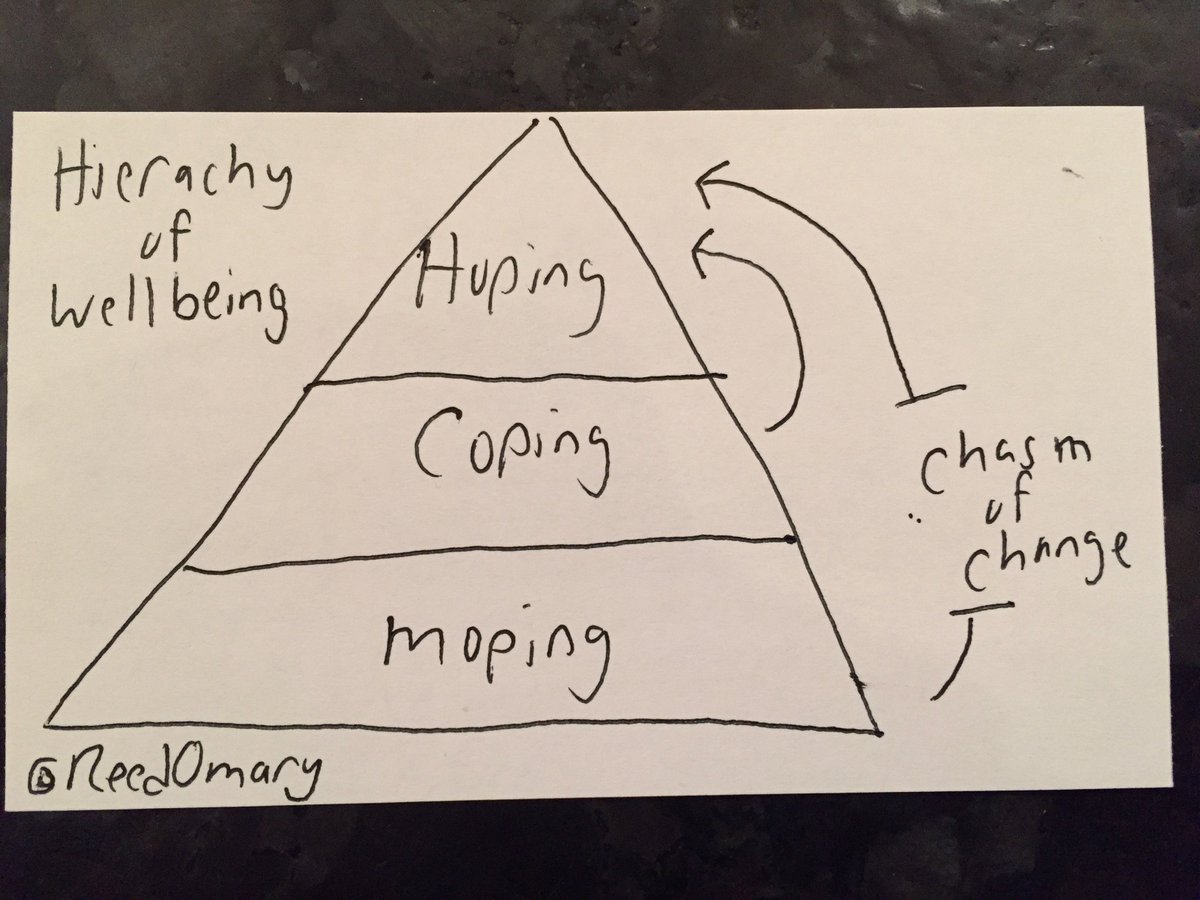 Hierachy
of
wellbeing
Hoping
Coping
moping
Chasm
of
change
@ReedOmary